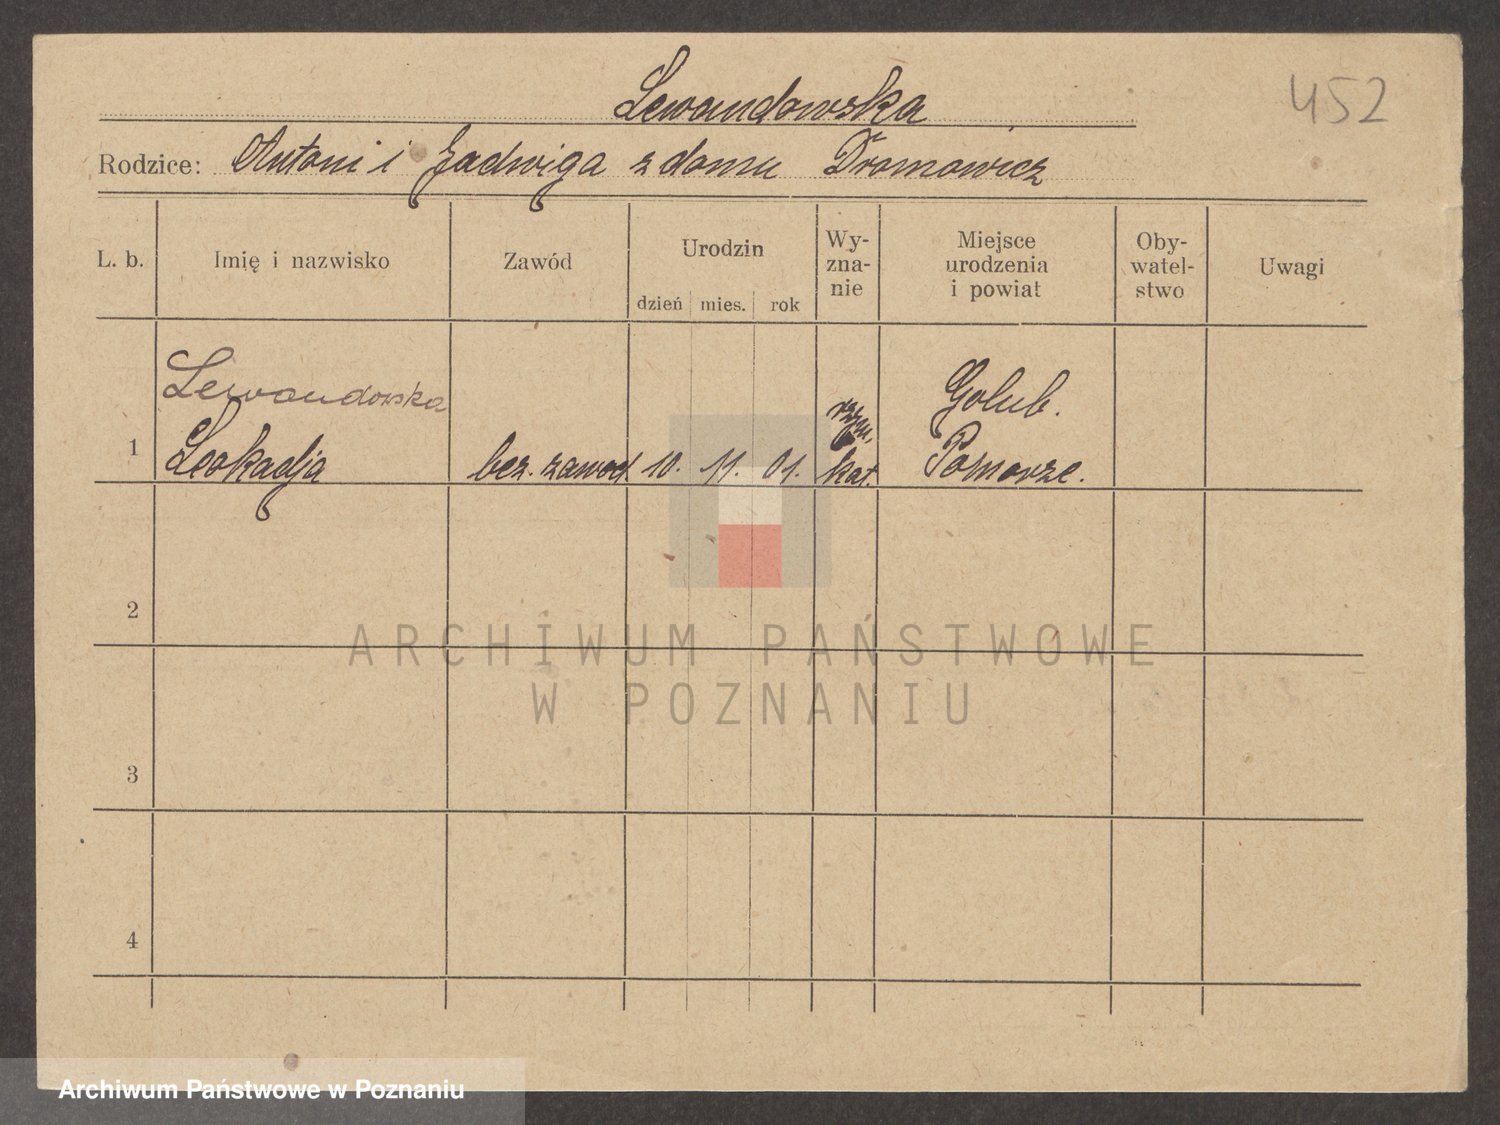 452
Lewandowska
Rodzice: Antoni i Jadwiga z domu Dromowicz
L. b. Imię i nazwisko Zawód Urodzin dzień mies. rok Wy-zna-nie Miejsce urodzenia i powiat Oby-watel-stwo Uwagi
Lewandowska Golub.
1 Leokadja bez. zawod. 10. 11. 01. rzym. kat. Pomorze.
2
3
4
ARCHIWUM PAŃSTWOWE
W POZNANIU
Archiwum Państwowe w Poznaniu